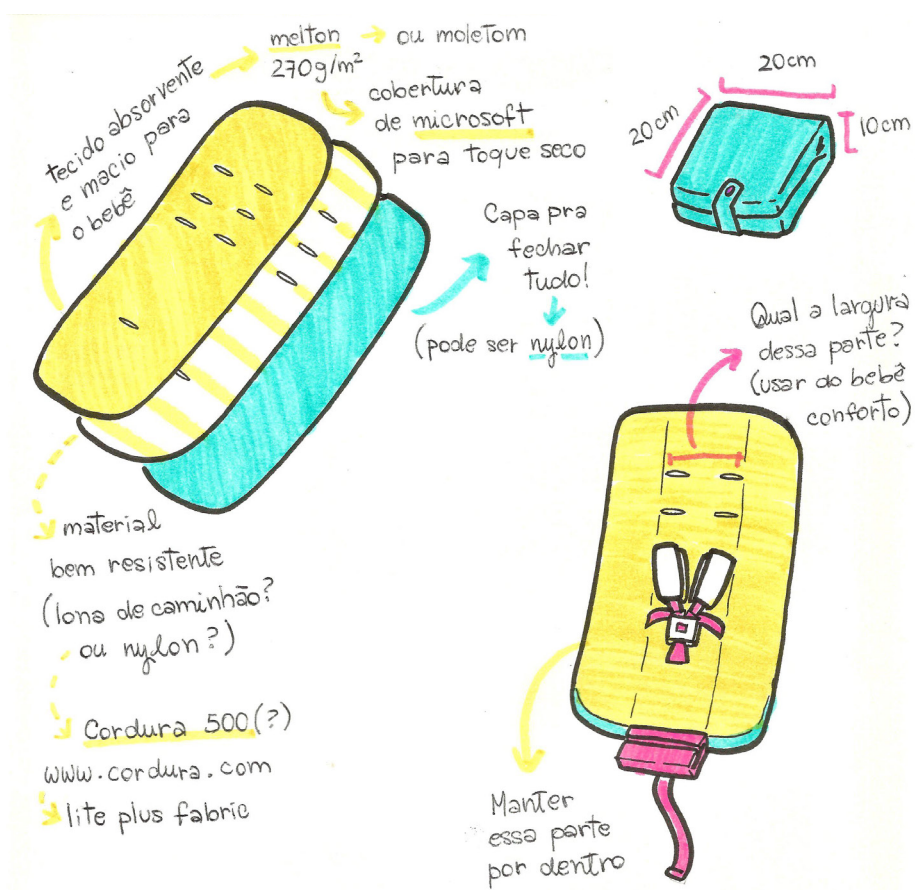 tecido absorvente
e macio para
o bebê
melton → ou moletom
270g/m²
cobertura
de microsoft
para toque seco
20cm
20cm
10cm
Capa pra
fechar
tudo!
(pode ser nylon)
Qual a largura
dessa parte?
(usar do bebê
conforto)
material
bem resistente
(lona de caminhão?
ou nylon?)
Cordura 500(?)
www.cordura.com
lite plus fabric
Manter
essa parte
por dentro